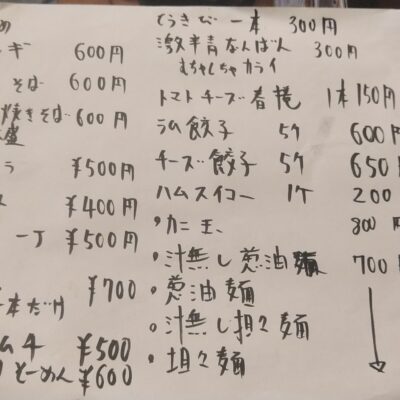 め
ギ 600円
そば 600円
焼きそば 600円
盛
ラ ¥500円
¥400円
一丁 ¥500円
¥700
本だけ
ムチ ¥500
そーめん ¥600
とうきび 一本 300円
激辛青なんばん 300円
むちゃくちゃカライ
トマトチーズ春捲 1本150円
ラム餃子 5ケ 600円
チーズ餃子 5ケ 650
ハムスイコー 1ケ 200
・カニ玉 800円
・汁無し葱油麺 700
・葱油麺
・汁無し担々麺
・坦々麺